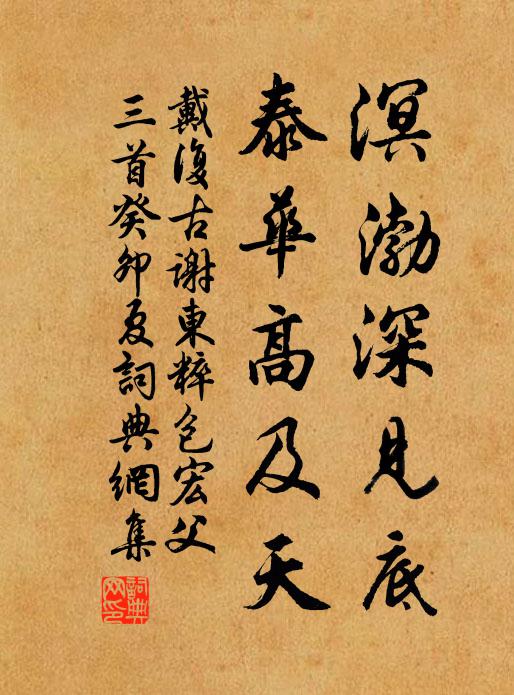 溟渤深見底
泰華高及天
戴復古謝東粹包宏父
三首癸卯夏詞典網集
詞典網印